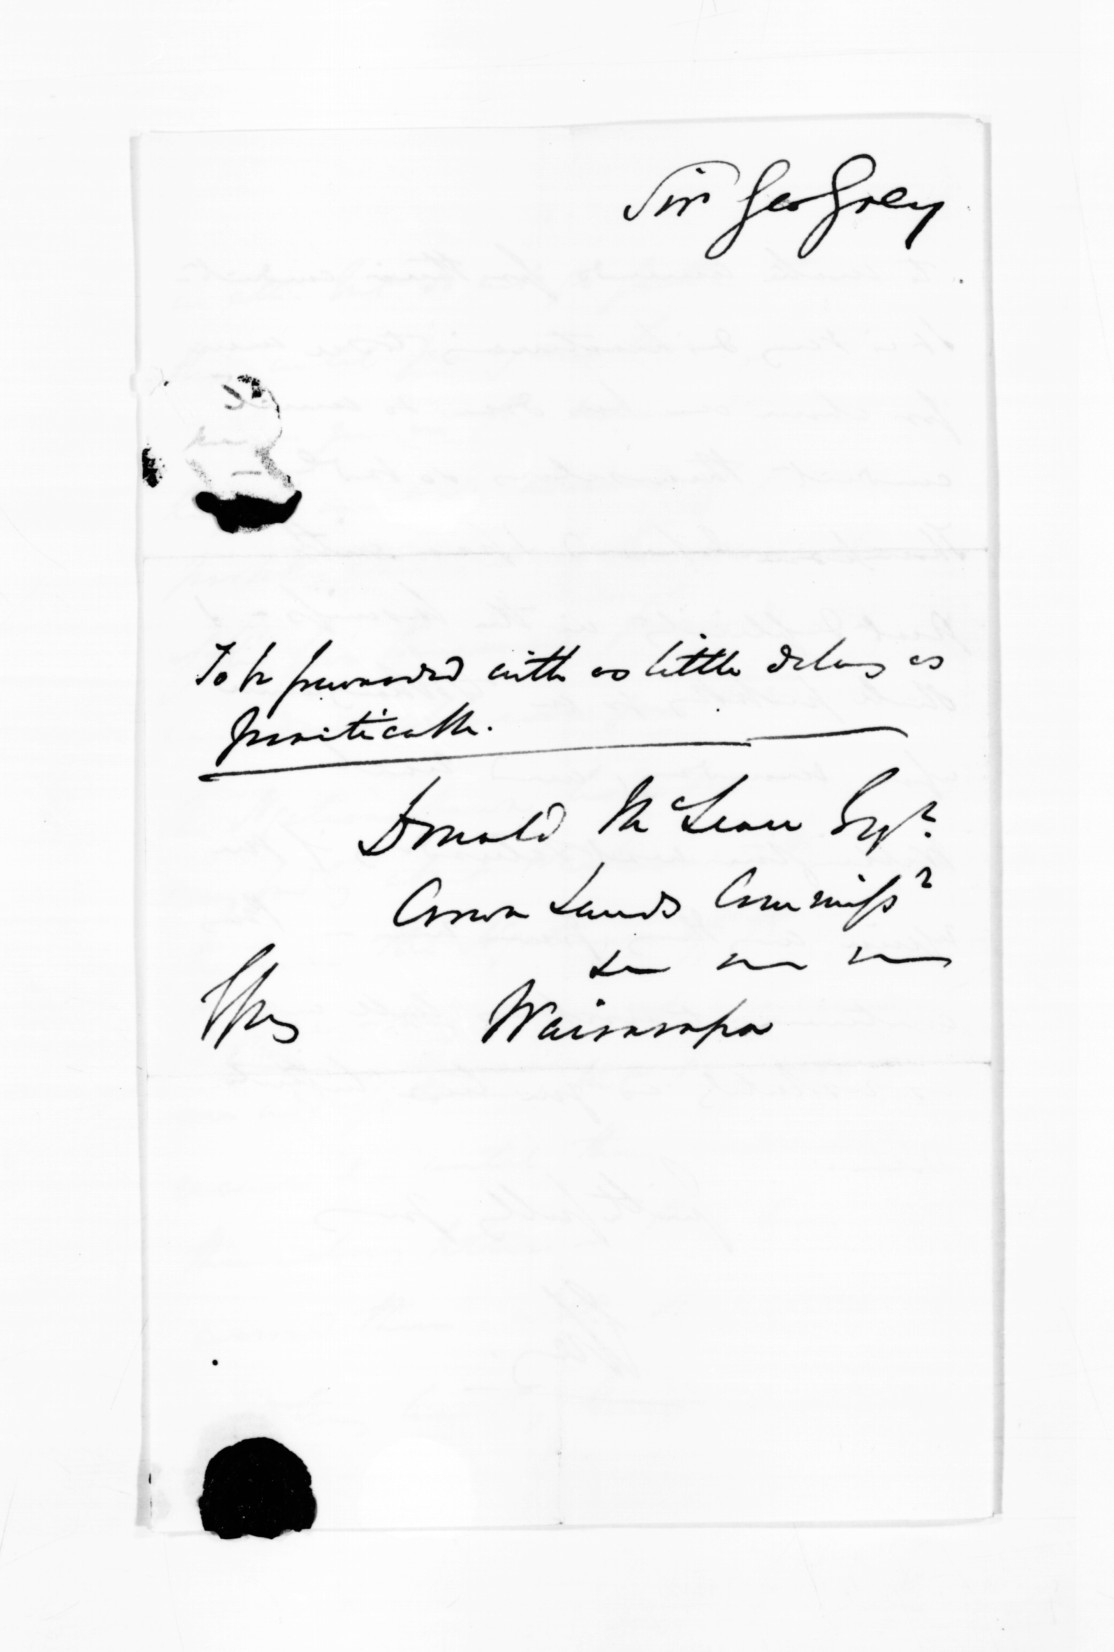 Sir Geo Grey
To be forwarded with as little delay as
practicable.
Donald McLean Esqr.
Crown Lands Commissr
Wairarapa